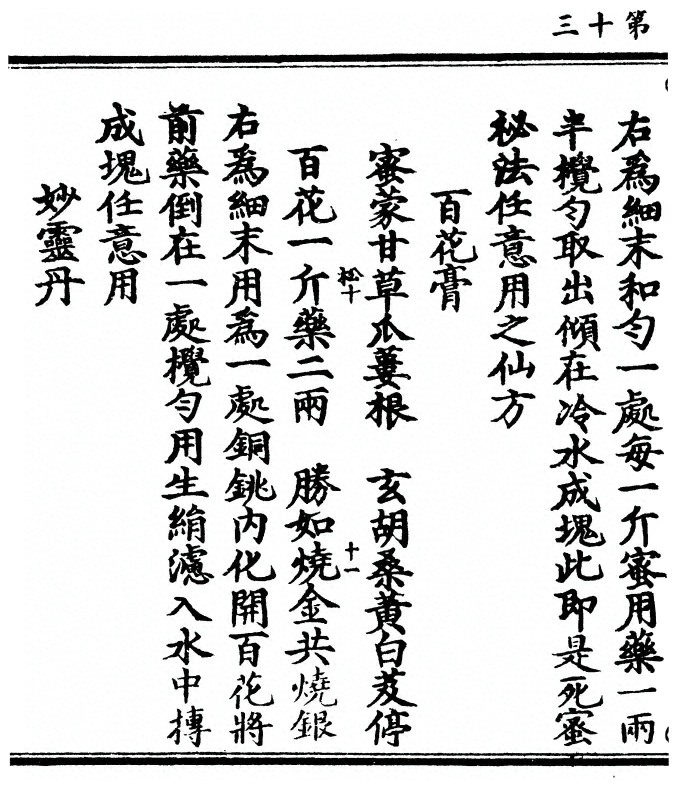 第十三
右爲細末和勻一處每一斤蜜用藥一兩
半攪勻取出傾在冷水成塊此即是死蜜
祕法任意用之仙方
百花膏
蜜蒙甘草瓜蔞根 玄胡桑黃白芨停
松十 十一
百花一斤藥二兩 勝如燒金共燒銀
右爲細末用爲一處銅銚內化開百花將
前藥倒在一處攪勻用生絹濾入水中摶
成塊任意用
妙靈丹